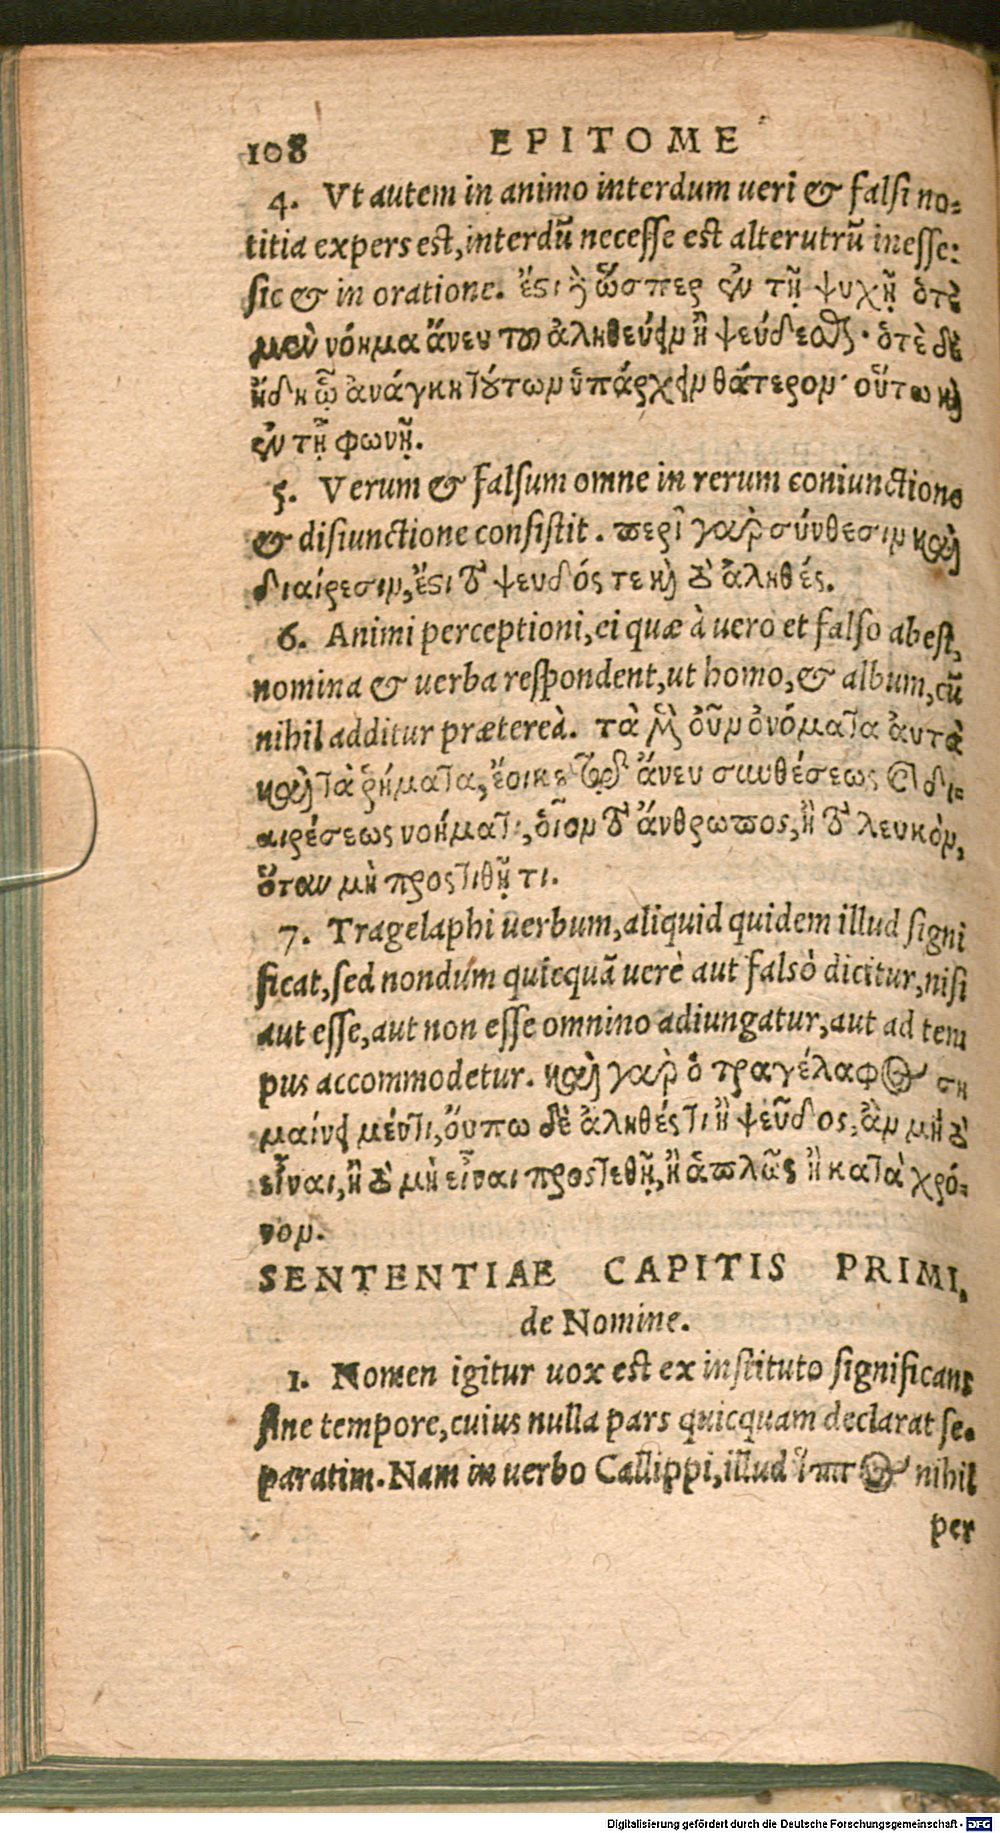 108 EPITOME
4. Vt autem in animo interdum ueri & falsi no-
titia expers est, interdũ necesse est alterutrũ inesse:
sic & in oratione. ἔστι δὲ ὥσπερ ἐν τῇ ψυχῇ ὁτὲ
μὲν νόημα ἄνευ τοῦ ἀληθεύειν ἢ ψεύδεσθαι· ὁτὲ δὲ
ἤδη ᾧ ἀνάγκη τούτων ὑπάρχειν θάτερον· οὕτω καὶ
ἐν τῇ φωνῇ.
5. Verum & falsum omne in rerum coniunctione
& disiunctione consistit. περὶ γὰρ σύνθεσιν καὶ
διαίρεσιν, ἔστι τὸ ψευδός τε καὶ τὸ ἀληθές.
6. Animi perceptioni, ei quæ à uero et falso abest,
nomina & uerba respondent, ut homo, & album, cũ
nihil additur prætereà. τὰ μὲν οὖν ὀνόματα αὐτὰ
καὶ τὰ ῥήματα, ἔοικε τῷ ἄνευ συνθέσεως καὶ δι-
αιρέσεως νοήματι, οἷον τὸ ἄνθρωπος, ἢ τὸ λευκὸν,
ὅταν μὴ προστιθῇ τι.
7. Tragelaphi uerbum, aliquid quidem illud signi
ficat, sed nondum quicquã uerè aut falsò dicitur, nisi
aut esse, aut non esse omnino adiungatur, aut ad tem
pus accommodetur. καὶ γὰρ ὁ τραγέλαφος ση
μαίνει μέν τι, οὔπω δὲ ἀληθές τι ἢ ψεῦδος, ἂν μὴ τὸ
εἶναι, ἢ τὸ μὴ εἶναι προστεθῇ, ἢ ἁπλῶς ἢ κατὰ χρό-
νον.
SENTENTIAE CAPITIS PRIMI,
de Nomine.
1. Nomen igitur uox est ex instituto significans
sine tempore, cuius nulla pars quicquam declarat se-
paratim. Nam in uerbo Callippi, illud ἵππος nihil
per
Digitalisierung gefördert durch die Deutsche Forschungsgemeinschaft - DFG